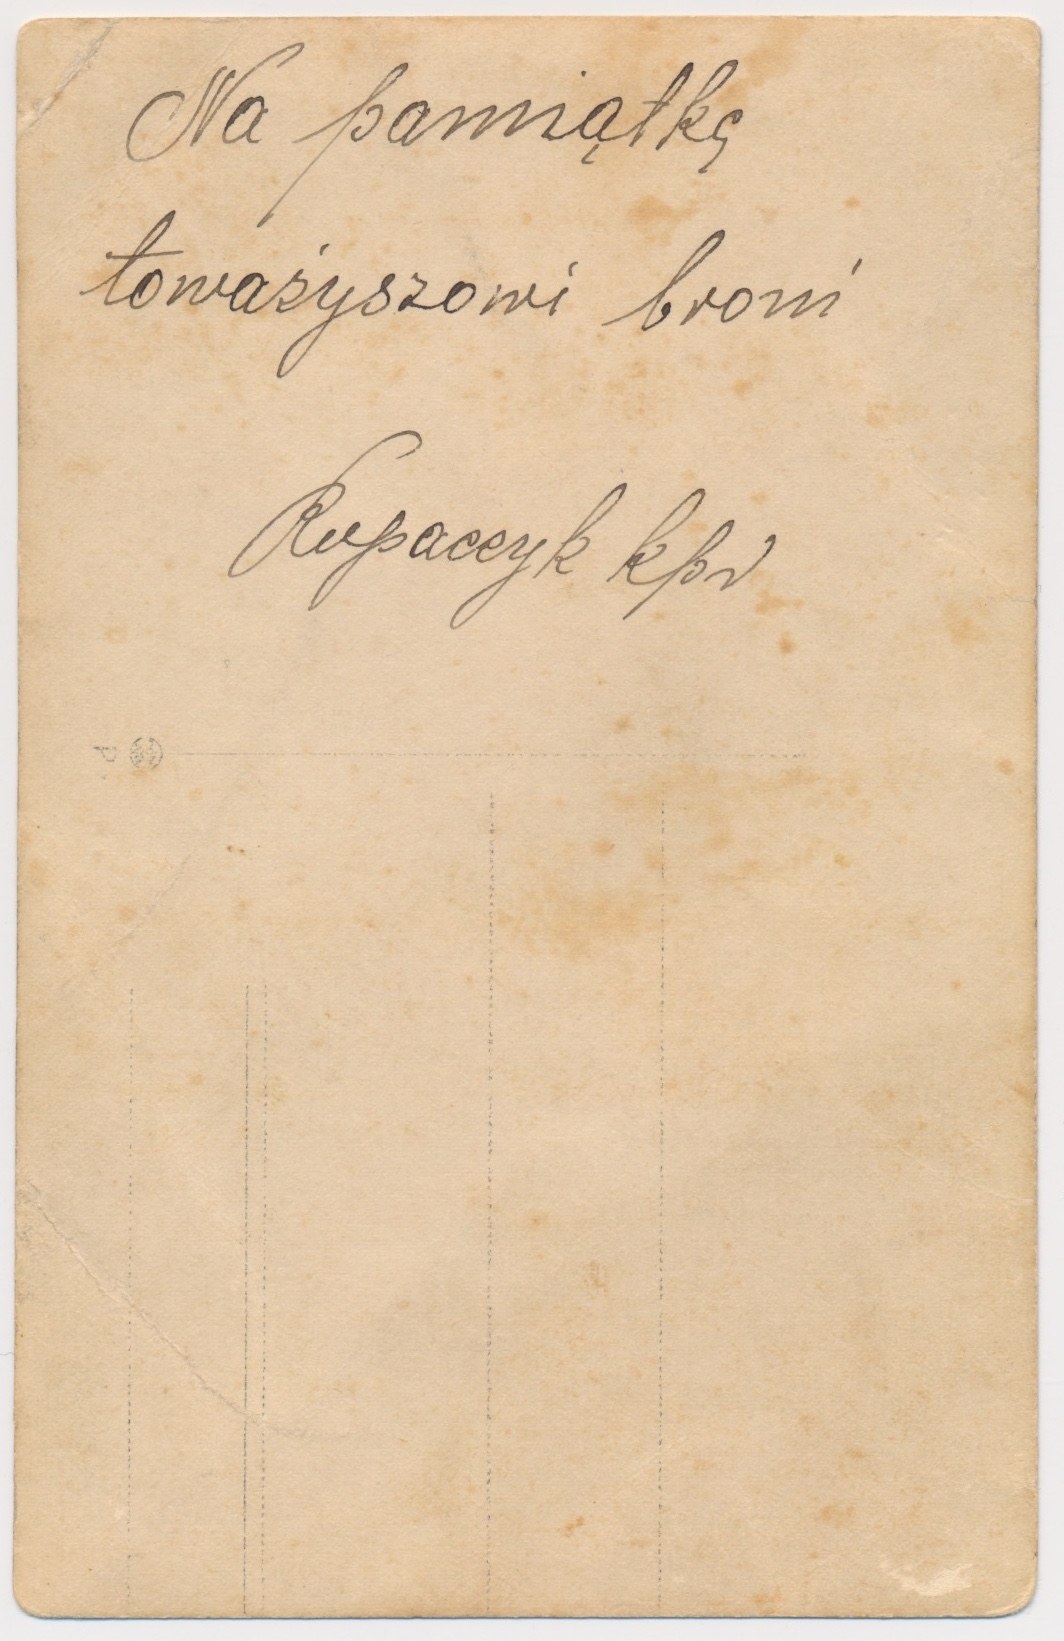 Na pamiątkę
toważyszowi broni
Rupaczyk kpr